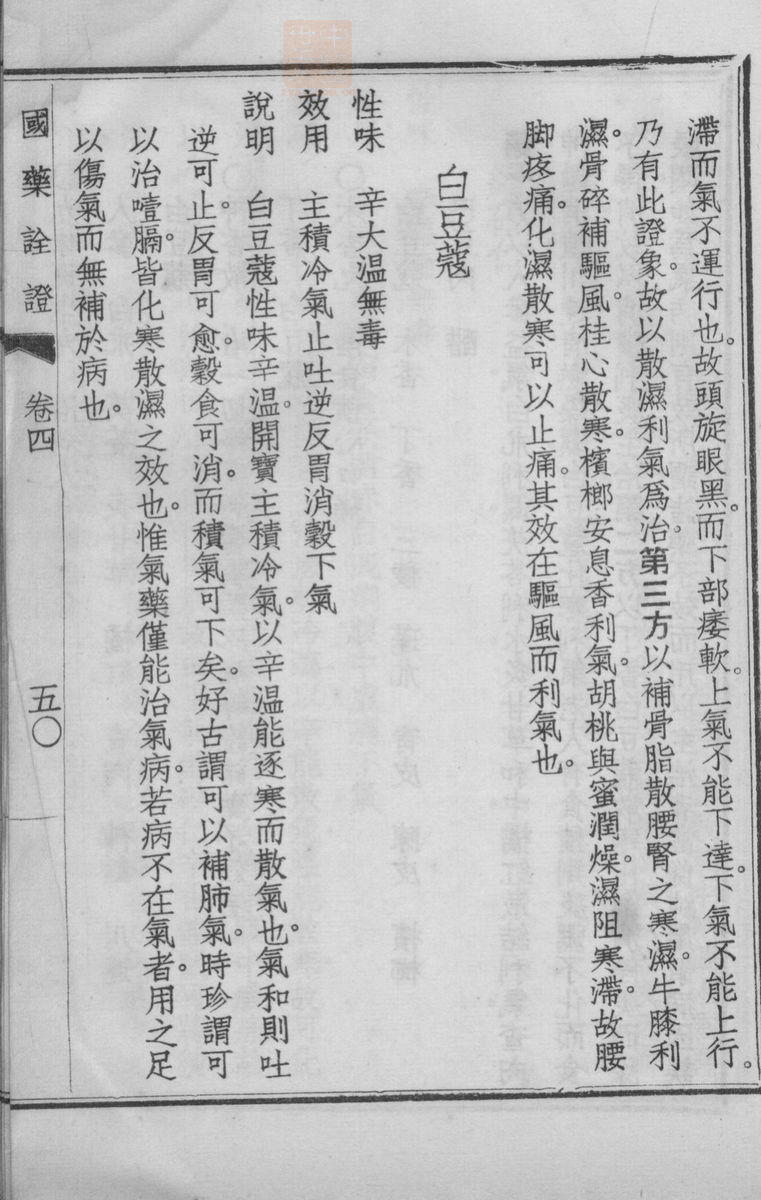 滯而氣不運行也。故頭旋眼黑。而下部痿軟。上氣不能下達。下氣不能上行。
乃有此證象。故以散濕利氣爲治。第三方以補骨脂散腰腎之寒濕。牛膝利
濕。骨碎補驅風。桂心散寒。檳榔安息香利氣。胡桃與蜜潤燥。濕阻寒滯。故腰
脚疼痛。化濕散寒可以止痛。其效在驅風而利氣也。
白豆蔻
性味　辛大温無毒
效用　主積冷氣止吐逆反胃消穀下氣
說明　白豆蔻性味辛温。開寶主積冷氣。以辛温能逐寒而散氣也。氣和則吐
逆可止。反胃可愈。穀食可消。而積氣可下矣。好古謂可以補肺氣。時珍謂可
以治噎膈。皆化寒散濕之效也。惟氣藥僅能治氣病。若病不在氣者。用之足
以傷氣而無補於病也。
國藥詮證　卷四　五〇